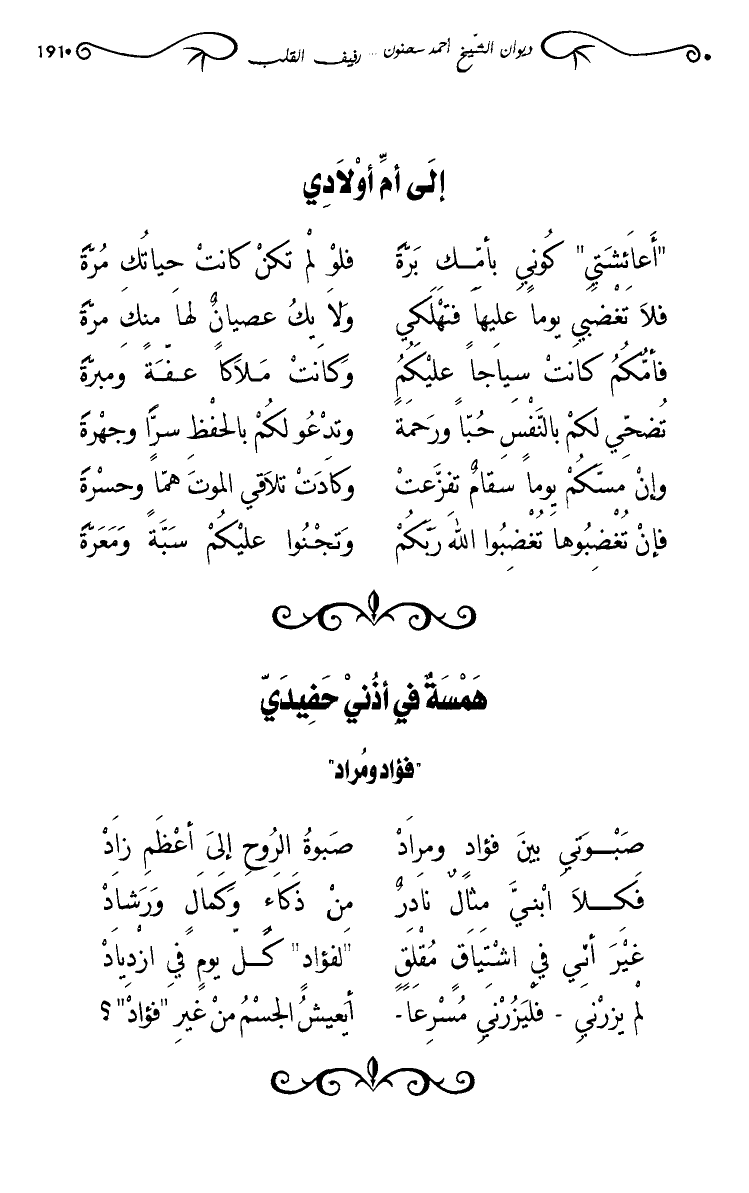 ديوان الشّيخ أحمد سحنون ... رفيف القلب 191
إلَى أمِّ أوْلاَدِي
"أَعائِشَتِي" كُونِي بأمّـــك بَرّةً فلوْ لمْ تكنْ كانتْ حياتُك مُرّةً
فلاَ تغْضبِي يوماً عليها فتهْلَكِي وَلاَ يكُ عصيانٌ لها منكِ مرّةً
فأمُّكمُ كانتْ سيَاجاً عليْكُمُ وَكانتْ مَـلاَكاً عـفّـةً ومبرّةً
تُضحّي لكمْ بالنَّفْسِ حُبّاً ورَحمةً وتدْعُو لكُمْ بالحْفْظِ سرًّا وجهْرةً
وإنْ مسّكُمْ يوماً سقَامٌ تفزّعتْ وكادَتْ تلاَقي الموتَ همّاً وحسْرةً
فإنْ تُغْضِبُوها تُغْضِبُوا اللّهَ ربّكُمْ وَتجْنُوا عليْكُمْ سَبَّةً وَمَعَرّةً
هَمْسَةٌ فِي أذُنيْ حَفِيدَيّ
"فؤاد ومُراد"
صَبْـــوَتي بينَ فؤاد ومرادْ صَبوةُ الرُوحِ إلىَ أعْظَمِ زادْ
فَكـــلاَ ابْنيَّ مثالٌ نادرٌ مِنْ ذَكَاءٍ وَكَمالٍ وَرَشادْ
غيْرَ أنّي في اشْتياقٍ مُقْلقٍ "لفؤادٍ" كُـــلّ يومٍ فِي ازْديادْ
لمْ يزرْني - فلْيَزُرْني مُسْرعاً- أيَعيشُ الجسْمُ منْ غَيرِ "فؤادْ" ؟